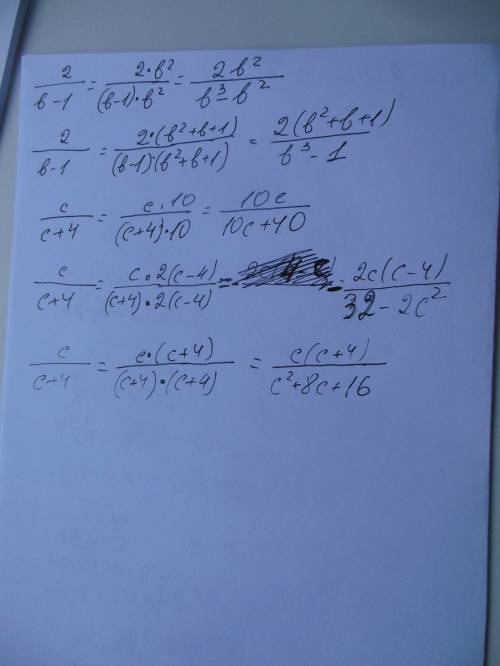 2/(в-1) = 2·в²/((в-1)·в²) = 2в²/(в³-в²)
2/(в-1) = 2·(в²+в+1)/((в-1)·(в²+в+1)) = 2(в²+в+1)/(в³-1)
c/(c+4) = c·10/((c+4)·10) = 10c/(10c+40)
c/(c+4) = c·2(c-4)/((c+4)·2(c-4)) = - 2c(c-4)/(32-2c²)
c/(c+4) = c·(c+4)/((c+4)·(c+4)) = c(c+4)/(c²+8c+16)